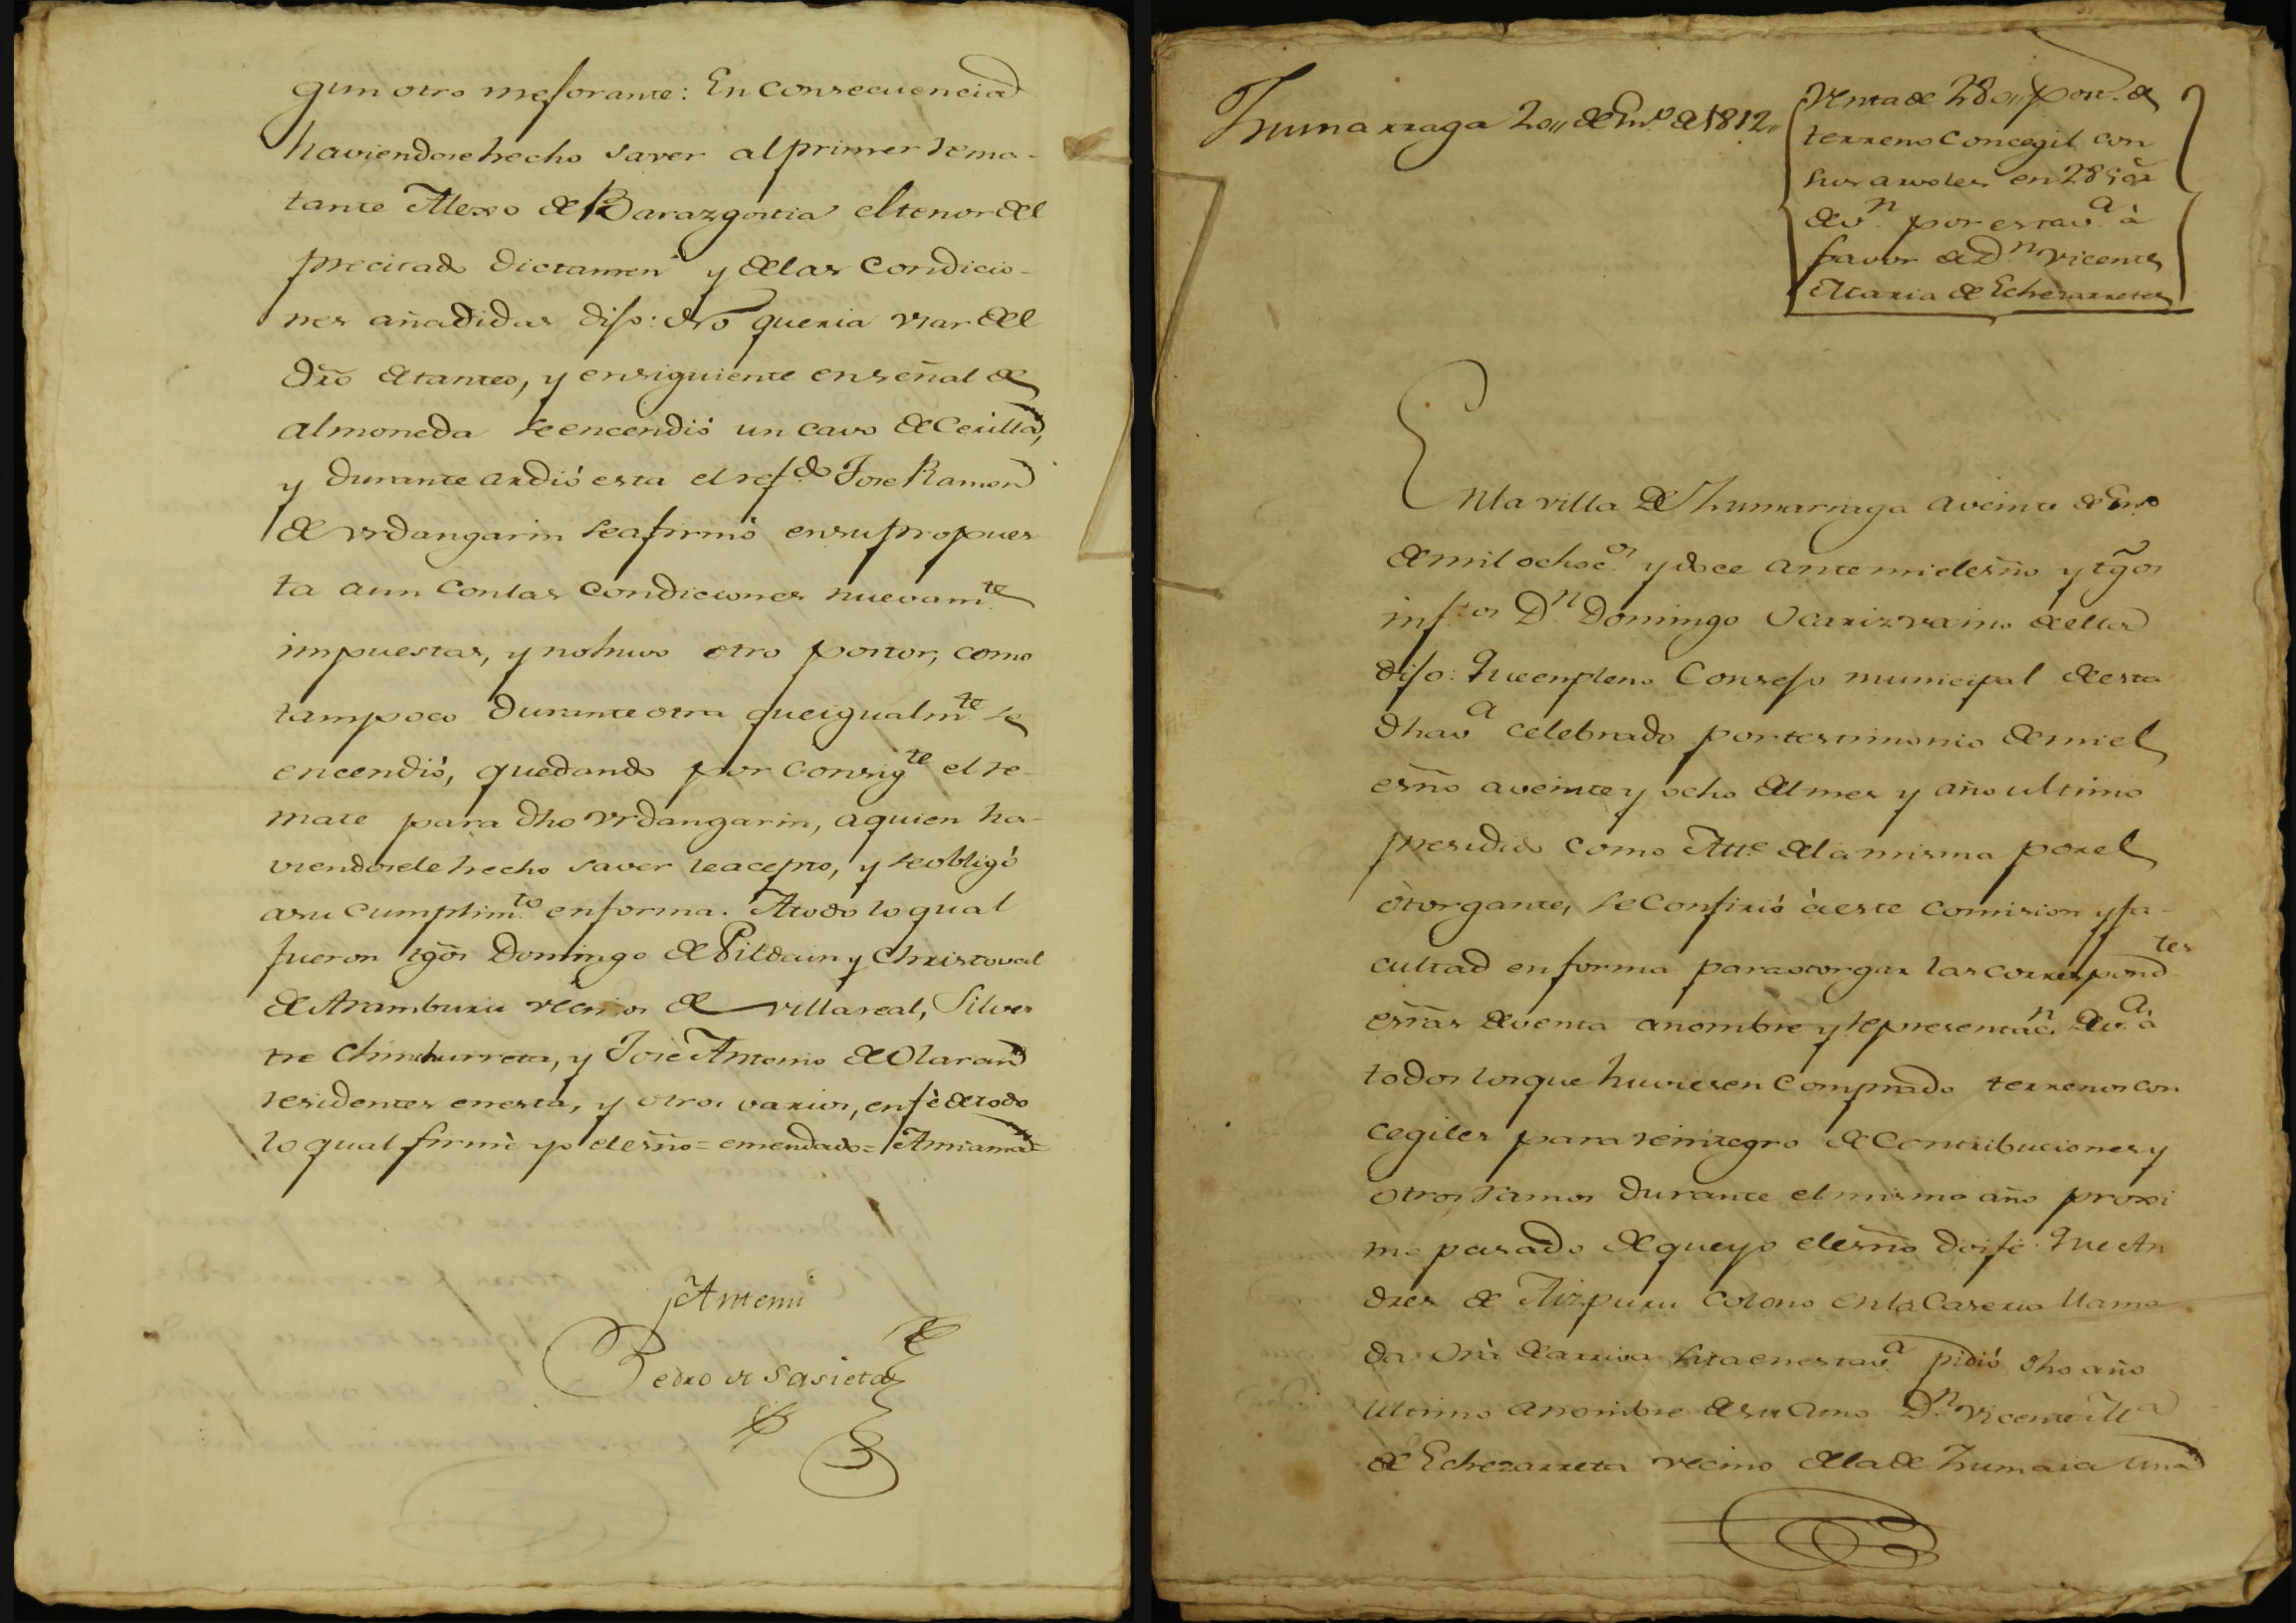 gun otro mejorante: En consecuencia
haviendose hecho saver al primer rema-
tante Alexo de Barazgoitia el tenor del
precitado dictamen y delas condicio-
nes añadidas dijo: No queria usar del
dr̃o de tanteo, y ensiguiente enseñal de
almoneda se encendió un cavo de Cerilla,
y durante ardió esta el refdo Jose Ramon
de Urdangarin se afirmó en su propues
ta aun con las condiciones nuevamte
impuestas, y no huvo otro postor, como
tampoco durante otra que igualmte se
encendió, quedando por consigte el re-
mate para dho Urdangarin, a quien ha-
viendosele hecho saver le acepto, y se obligó
a su cumplimto en forma. A todo lo qual
fueron tgõs Domingo de Pildain y Christoval
de Aramburu vecinos de Villareal, Silves
tre Chinchurreta, y Jose Antonio de Olaran
residentes en esta, y otros varios, en fè de todo
lo qual firmè yo el esños=emendado=
Antemi
Pedro de Sasieta
Zumarraga 20,, de Enº de 1812,,
Venta de 280,, pos. de
terreno Concegil con
sus arvoles en
de vn por esta va à
favor de Dn Vicente
Maria de Echezarreta
En la villa de Zumarraga a veinte de Enº
de mil ochocs y doce ante mi el esñō y tgõs
infrtos Dn Domingo Ocariz vecino de ella
dijo: Que en pleno Consejo municipal de esta
dha va celebrado por testimonio de mi el
esñō a veinte y ocho del mes y año ultimo
presidido como Alle de la misma por el
otorgante, se confirió à este comision y fa-
cultad en forma para otorgar las correspondtes
esr̃as de venta a nombre y representacn de va à
todos los que huviesen comprado terrenos con
cegiles para reintegro de Contribuciones y
otros ramos durante el mismo año proxi
mo pasado de que yo el esñō doi fè: Que An
dres de Aizpuru colono en la Caseria llama
da Orà de arriva sita en esta va pidió dho año
ultimo a nombre de su Amo Dn Vicente Ma
de Echezarreta vecino de la de Zumaia una